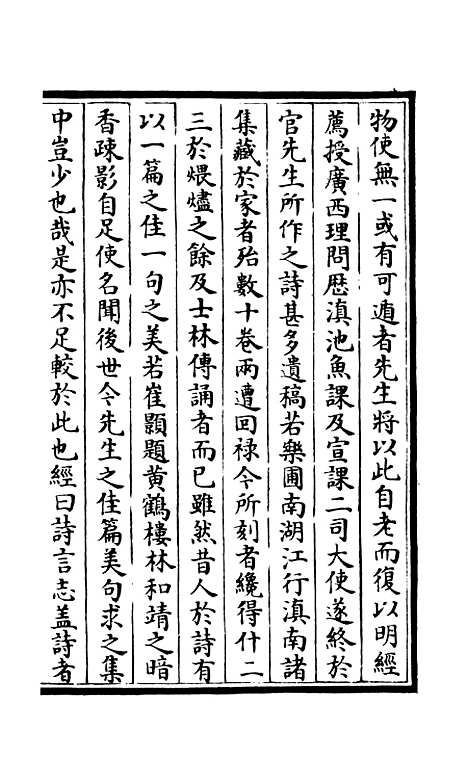 物使無一或有可遁者先生將以此自老而復以明經
薦授廣西理問歷滇池魚課及宣課二司大使遂終於
官先生所作之詩甚多遺稿若樂圃南湖江行滇南諸
集藏於家者殆數十卷兩遭回禄今所刻者纔得什二
三於煨燼之餘及士林傳誦者而已雖然昔人於詩有
以一篇之佳一句之美若崔顥題黃鶴樓林和靖之暗
香疎影自足使名聞後世今先生之佳篇美句求之集
中豈少也哉是亦不足較於此也經曰詩言志盖詩者